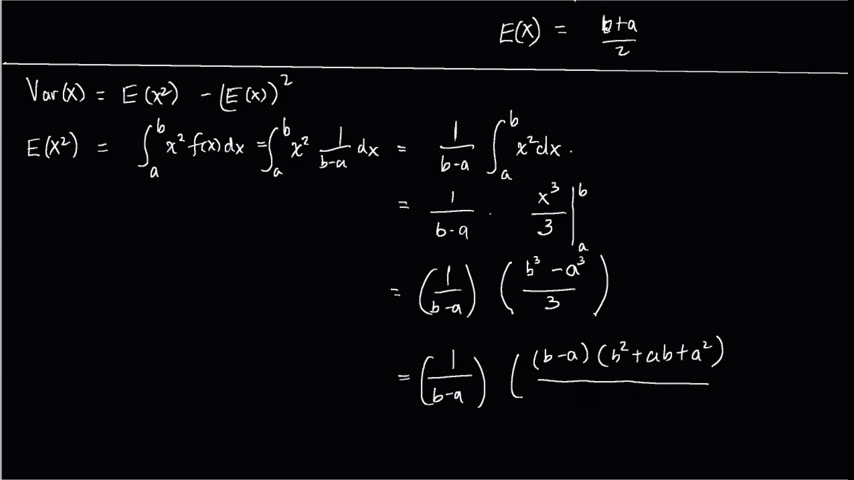 E(X) = b+a/2
Var(X) = E(X²) - (E(X))²
E(X²) = ∫_a^b x² f(x) dx = ∫_a^b x² 1/(b-a) dx = 1/(b-a) ∫_a^b x² dx.
= 1/(b-a) · x³/3 |_a^b
= (1/(b-a)) ((b³ - a³)/3)
= (1/(b-a)) ((b-a)(b² + ab + a²)